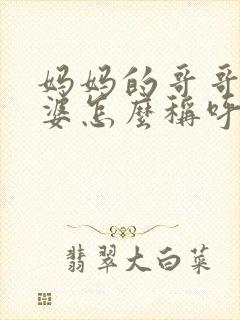 妈妈的哥哥
婆怎麼稱呼
翡翠大白菜